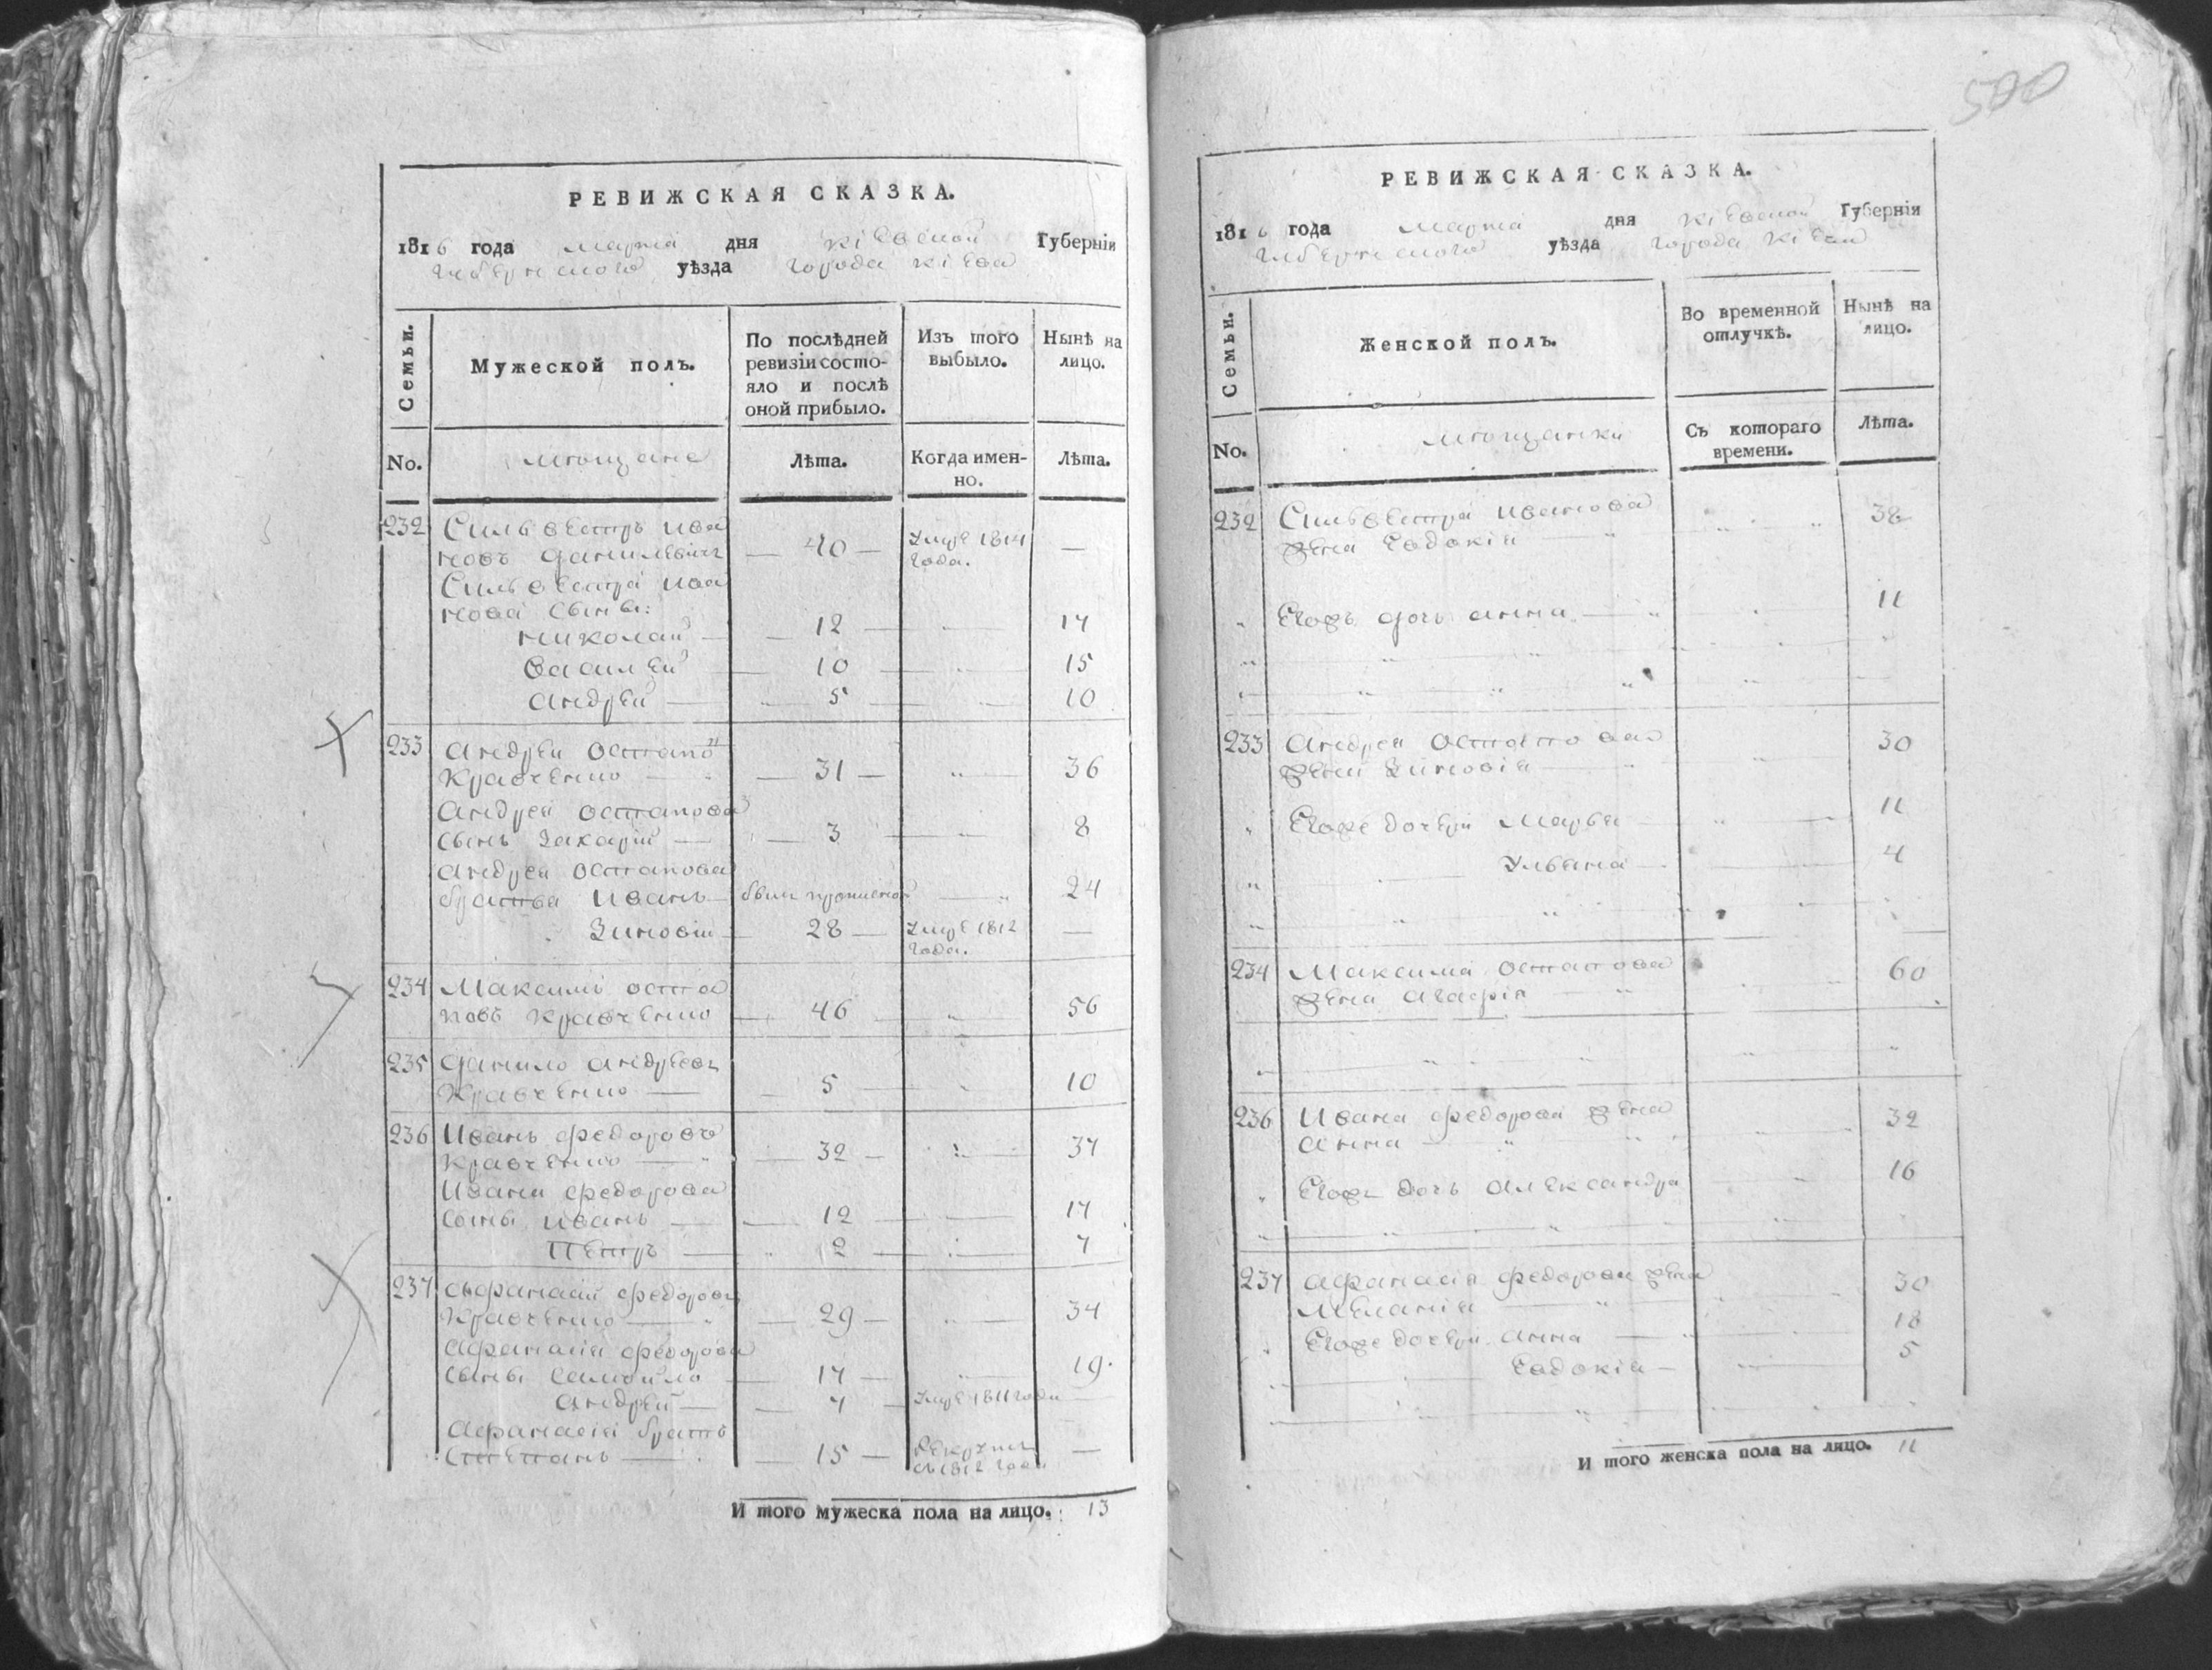 500
РЕВИЖСКАЯ СКАЗКА.
1816 года марта дня Кіевской Губерніи
Губернского уѣзда города Кіева
Семьи.
Мужеской полъ.
По послѣдней ревизіи состо-
яло и послѣ
оной прибыло.
Изъ того
выбыло.
Нынѣ на
лицо.
No. мещане Лѣта. Когда имен-
но. Лѣта.
232 Сильвестръ Ива
новъ Данилевичъ — 40 — Умре 1814
года. —
Сильвестра Ива
нова сыны:
Николай — 12 — 17
Василей — 10 — 15
Андрей — 5 — 10
233 Андрей Остапо
Кравченко — 31 — 36
Андрея Остапова
сынъ Захарій — 3 — 8
Андрея Остапова
братья Иванъ — 24
Зиновій — 28 — Умре 1812
года. —
234 Максимъ Оста
повъ Кравченко — 46 — 56
235 Данило Андреевъ
Кравченко — 5 — 10
236 Иванъ Федоровъ
Кравченко — 32 — 37
Ивана Федорова
сыны Иванъ — 12 — 17
Петръ — 2 — 7
237 Афанасій Федоровъ
Кравченко — 29 — 34
Афанасія Федорова
сыны Самойло — 14 — 19.
Андрей — 7 — Умре 1811 года —
Афанасія братъ
Степанъ — 15 — въ 1812 года —
И того мужеска пола на лицо. 13
РЕВИЖСКАЯ СКАЗКА.
1816 года марта дня Кіевской Губерніи
Губернского уѣзда города Кіева
Семьи.
Женской полъ.
Во временной
отлучкѣ.
Нынѣ на
лицо.
No. мещанки Съ котораго
времени. Лѣта.
232 Сильвестра Иванова
жена Евдокія — 38
Егожъ дочь Анна — 11
233 Андрея Остапова
жена Зиновія — 30
Егоже дочери Марья — 11
Ульяна — 4
234 Максима Остапова
жена Агафія — 60
236 Ивана Федорова жена
Анна 32
Егожъ дочь Александра 16
237 Афанасія Федорова жена
Меланія 30
Егоже дочери Анна — 18
Евдокія — 5
И того женска пола на лицо. 11